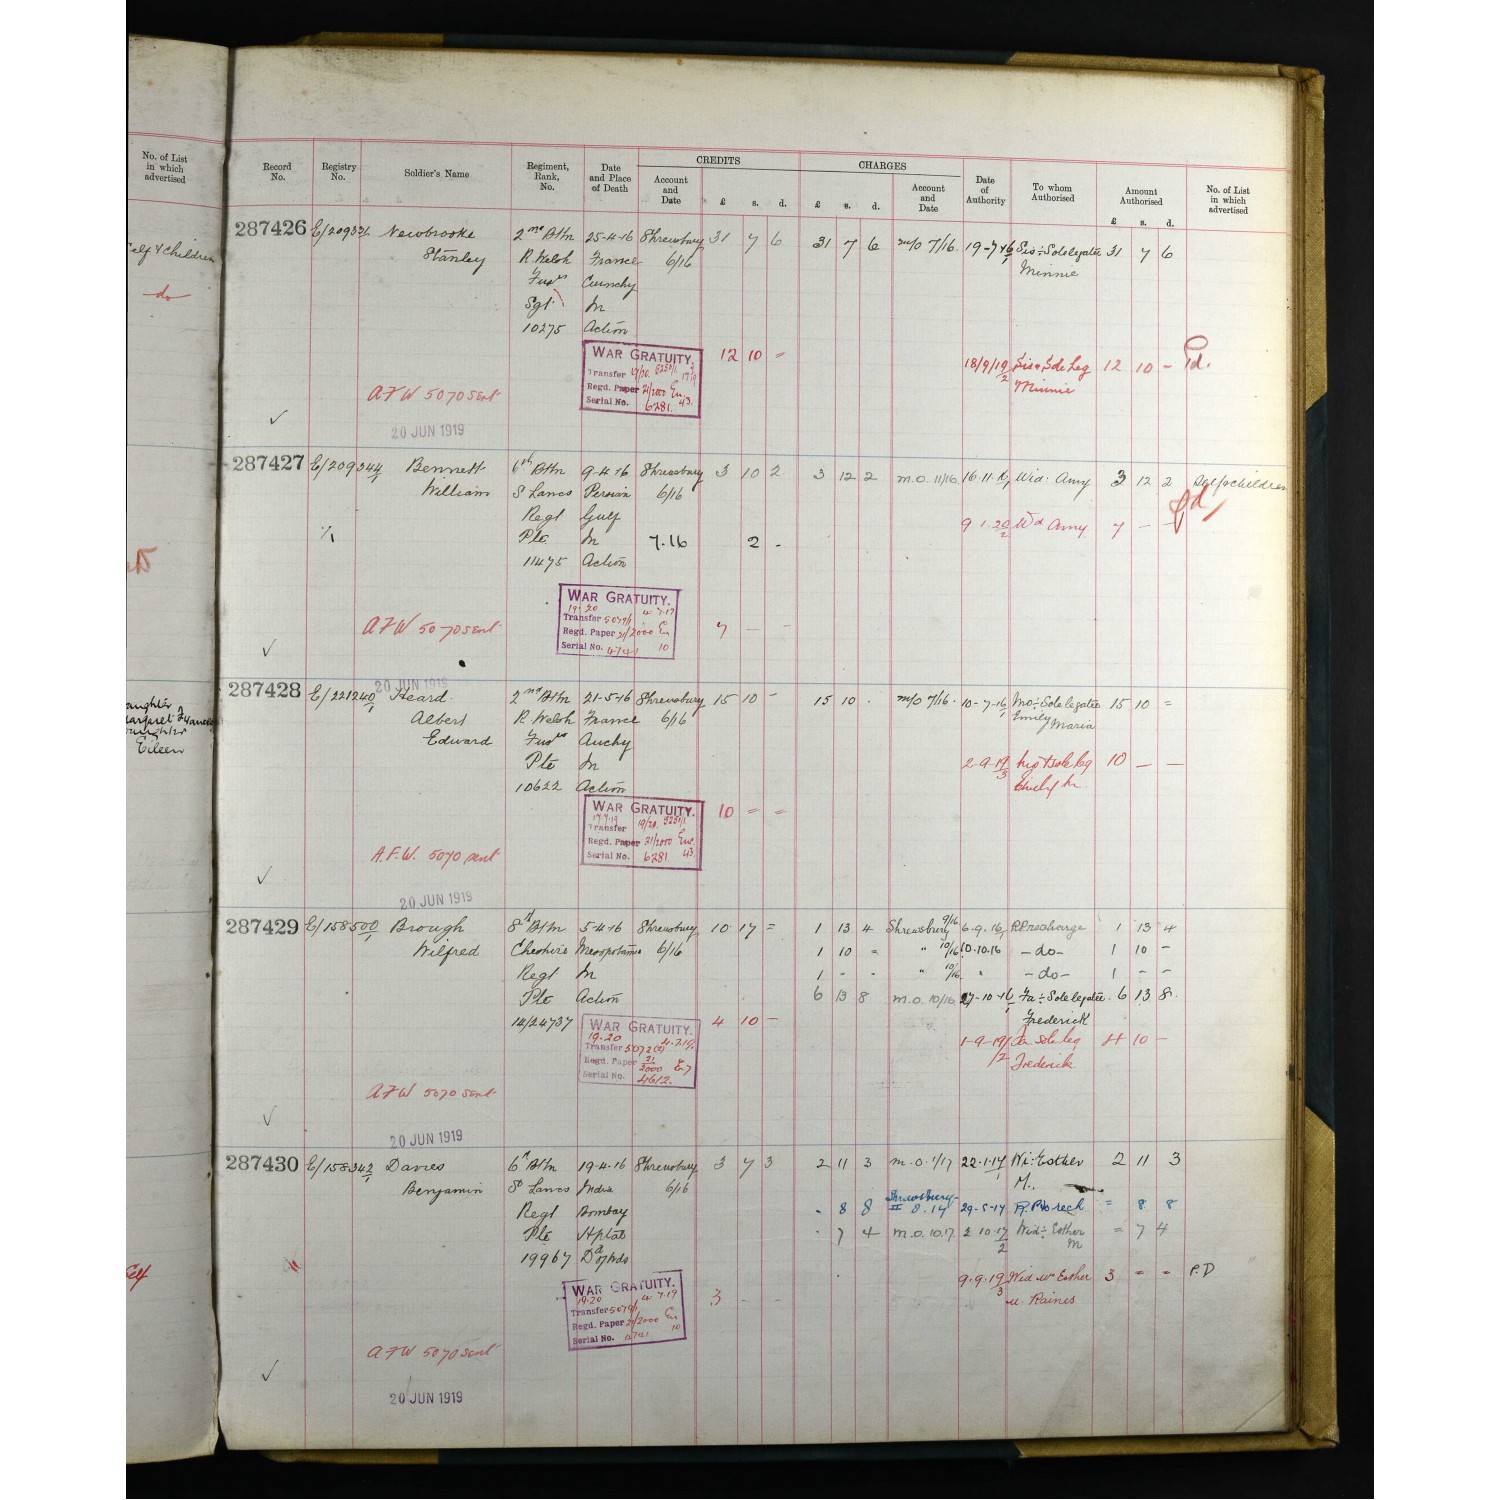 No. of List
in which
advertised
Self & children
do
Eileen
Self
CREDITS
CHARGES
Record
No.
Registry
No.
Soldier's Name
Regiment,
Rank,
No.
Date
and Place
of Death
Account
and
Date
£ s. d.
£ s. d.
Account
and
Date
Date
of
Authority
To whom
Authorised
Amount
Authorised
£ s. d.
No. of List
in which
advertised
287426 E/209331 Newbrooke 2nd Bttn 25-4-16 Shrewsbury 31 7 6 31 7 6 m/o 7/16. 19-7-16 Sis: Sole legatee 31 7 6
Stanley R. Welsh France 6/16 Minnie
Fusrs Cuinchy
Sgt In
10275 Action
WAR GRATUITY. 12 10 = 18/9/19 Sis & Sole Leg 12 10 - Pd.
Transfer 19/20. 5250/1 Minnie
Regd. Paper 21/2000 En
Serial No. 6281. 43.
AFW 5070 sent
20 JUN 1919
287427 E/209344 Bennett 6th Bttn 9-4-16 Shrewsbury 3 10 2 3 12 2 m.o. 11/16. 16.11.16 Wid: Amy 3 12 2 Self & children
William S Lancs Persian 6/16
Regt Gulf Pd,
1/1 Pte In 7.16 2 - 9.1.20 Wd Amy 7 - -
11475 Action
WAR GRATUITY.
19.20 4.7.19
Transfer 5079/1
Regd. Paper 21/2000 En
Serial No. 4741 10
7 - -
AFW 5070 sent
20 JUN 1919
287428 E/221240/1 Heard 2nd Bttn 21-5-16 Shrewsbury 15 10 - 15 10 . m/o 7/16. 10-7-16 Mo: Sole legatee 15 10 =
Albert R. Welsh France 6/16 Emily Maria
Edward Fusrs Auchy
Pte In 2-9-19/3 10 - -
10622 Action
WAR GRATUITY. 10 = =
17.9.19 19/20. 5250/1
Transfer
Regd. Paper 21/2000 En.
Serial No. 6281 43.
A.F.W. 5070 sent
20 JUN 1919
287429 E/158500/1 Brough 8th Bttn 5-4-16 Shrewsbury 10 17 = 1 13 4 Shrewsbury 9/16 6-9.16 RP recharge 1 13 4
Wilfred Cheshire Mesopotamia 6/16 1 10 = " 10/16 10.10.16 -do- 1 10 -
Regt In 1 - - " 10/16 " -do- 1 - -
Pte Action 6 13 8 m.o. 10/16 27-10-16 Fa: Sole legatee. 6 13 8.
14/24737 Frederick
WAR GRATUITY. 4 10 - 1-9-19/2 Fa Sole Leg 4 10 -
19.20 4.7.19. Frederick
Transfer 5072(2)
Regd. Paper 21/2000 E.7
Serial No. 4612.
AFW 5070 sent
20 JUN 1919
287430 E/158342/1 Davies 6th Bttn 19-4-16 Shrewsbury 3 7 3 2 11 3 m.o. 1/17 22-1-17 Wi: Esther 2 11 3
Benjamin S Lancs India 6/16 M.
Regt Bombay - 8 8 Shrewsbury II 8.17 29-8-17 = 8 8
Pte Hptal - 7 4 m.o. 10.17. 2.10.17/2 Wid: Esther M = 7 4
19967 Dd of Wds
9.9.19/3 Wid Esther 3 = = P.D
M. Raines
WAR GRATUITY. 3 - -
19.20 4.7.19
Transfer 5079/1
Regd. Paper 21/2000 En
Serial No. 4741 10
AFW 5070 sent
20 JUN 1919